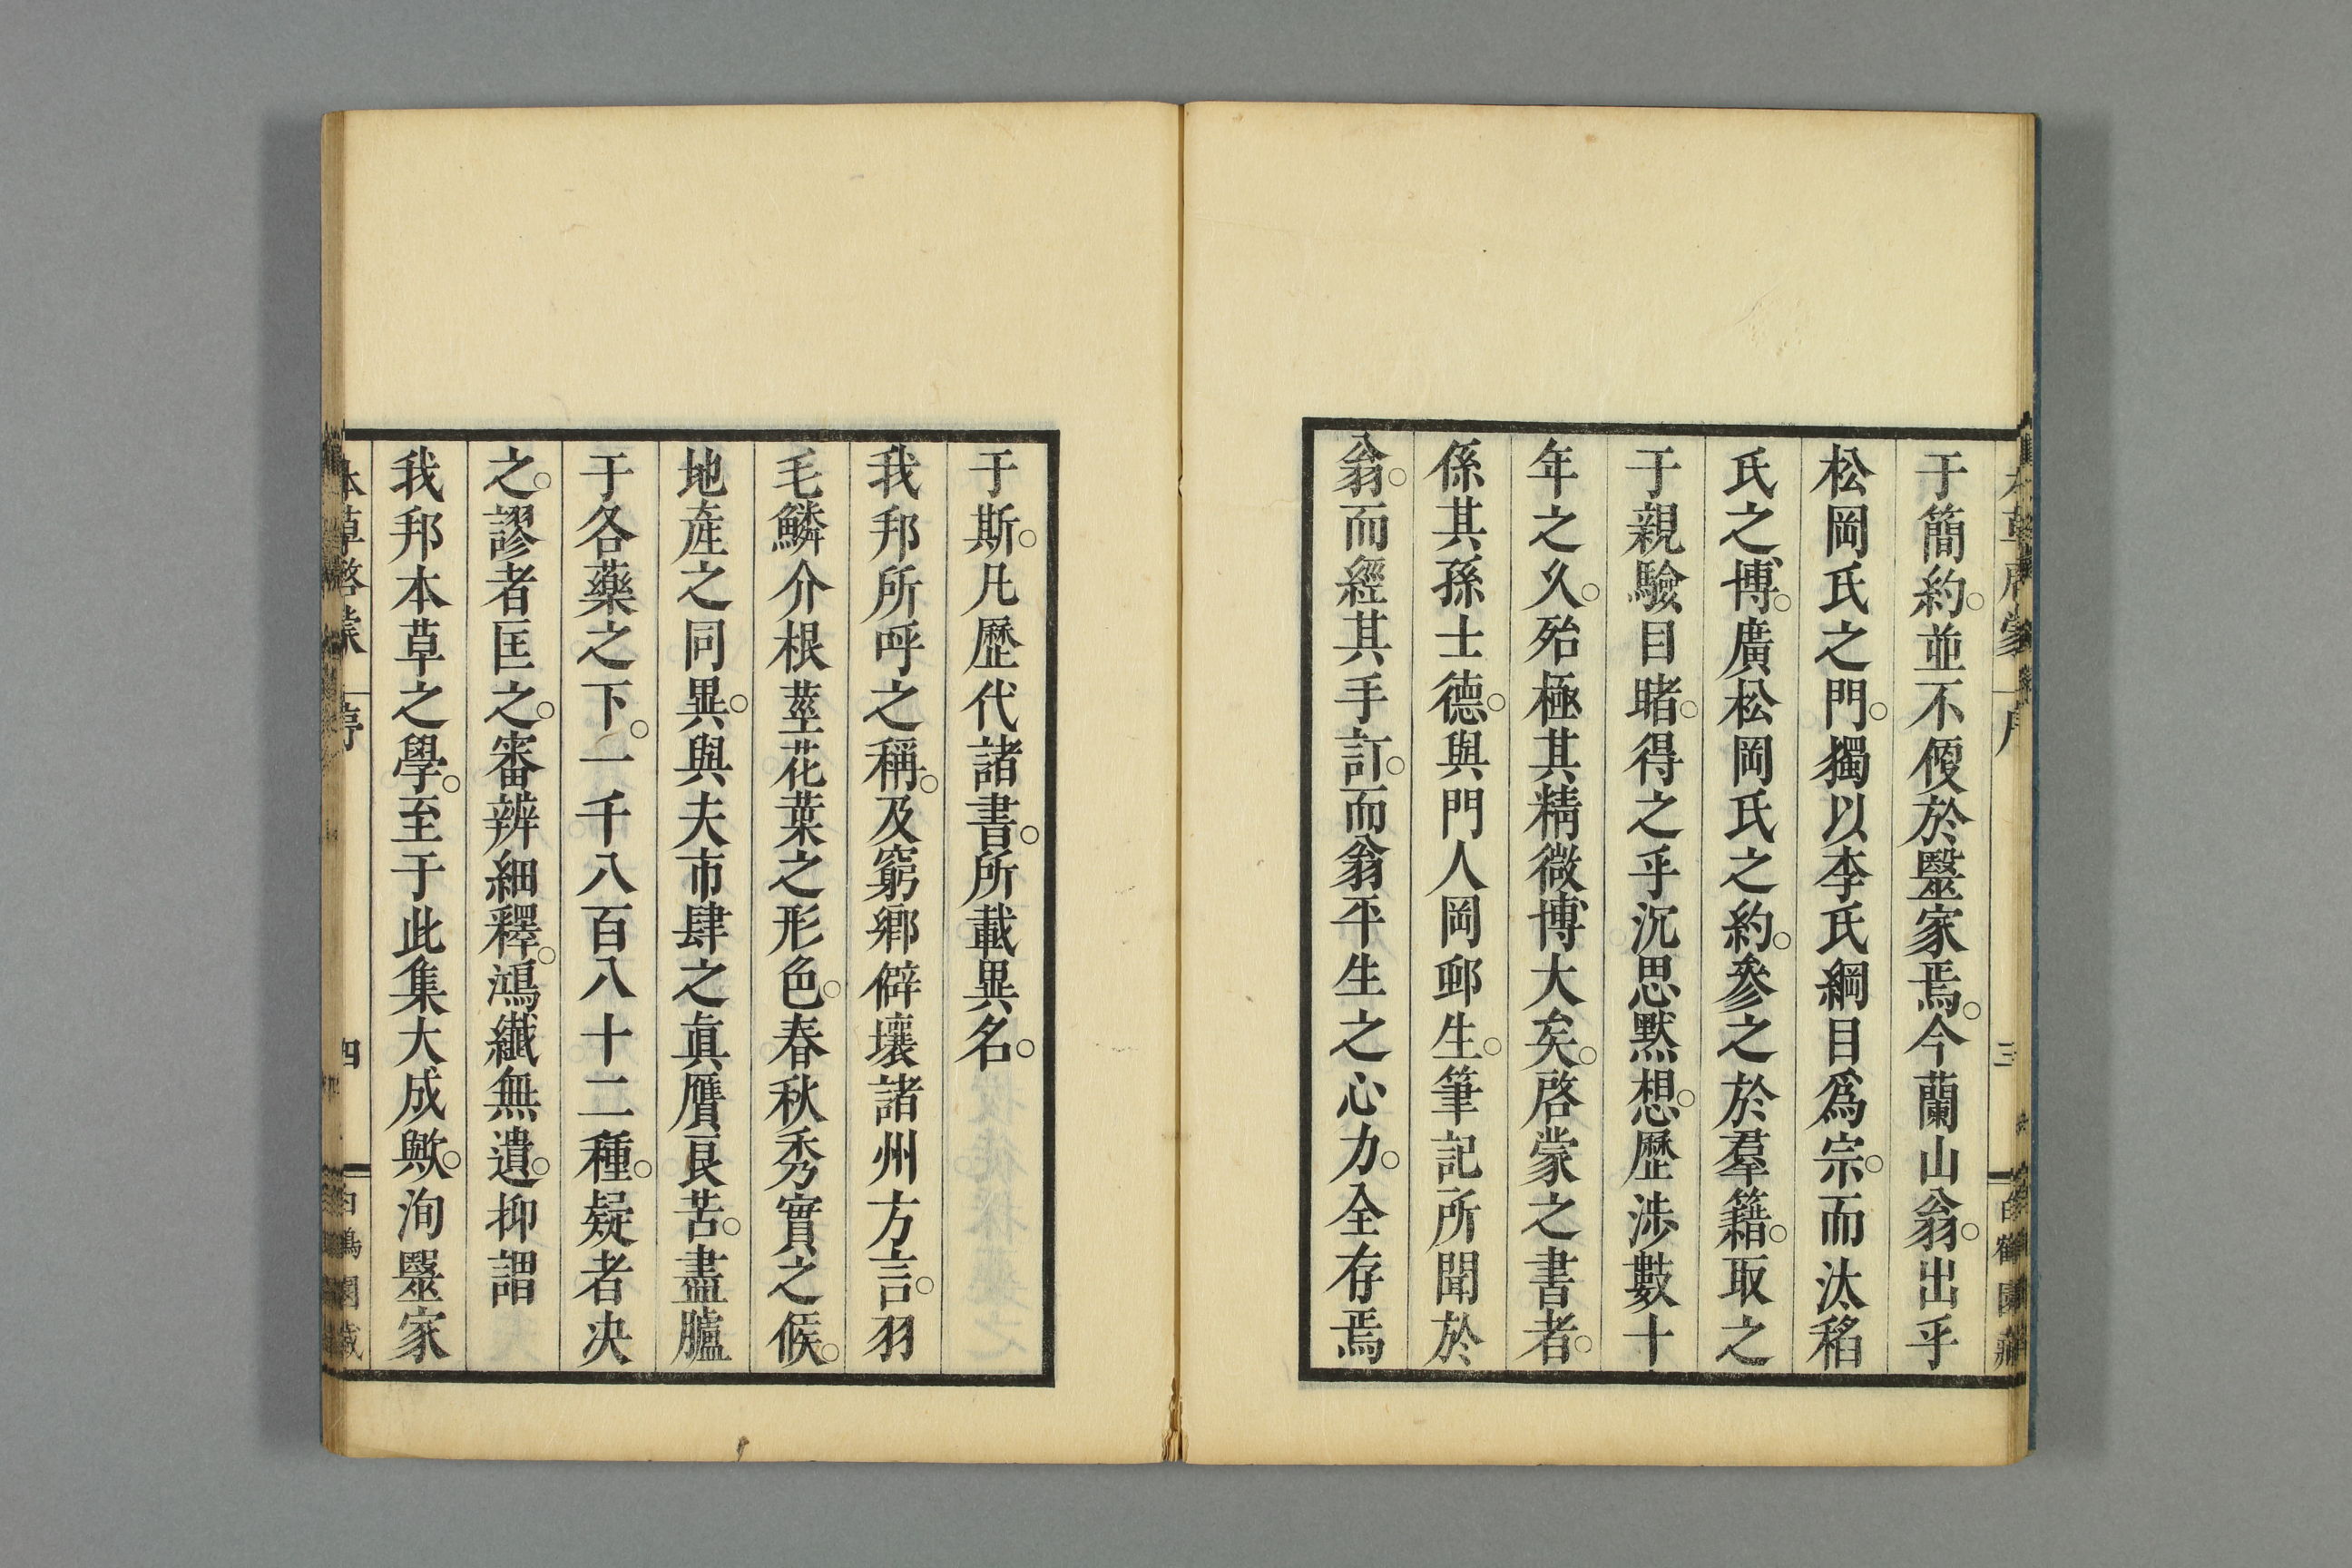 于簡約。並不便於毉家焉。今蘭山翁。出乎
松岡氏之門。獨以李氏綱目爲宗。而汰稻
氏之博。廣松岡氏之約。參之於羣籍。取之
于親驗目睹。得之乎沉思默想。歷涉數十
年之久。殆極其精微博大矣。啓蒙之書者。
係其孫士德。與門人岡邨生。筆記所聞於
翁。而經其手訂。而翁平生之心力。全存焉
于斯。凡歷代諸書。所載異名。
我邦所呼之稱。及窮鄉僻壤諸州方言。羽
毛鱗介根莖花葉之形色。春秋秀實之候。
地產之同異。與夫市肆之眞贋良苦。盡臚
于各藥之下。一千八百八十二種。疑者决
之。謬者匡之。審辨細釋。鴻纖無遺。抑謂
我邦本草之學。至于此集大成歟。洵毉家
本草啓蒙 序 四